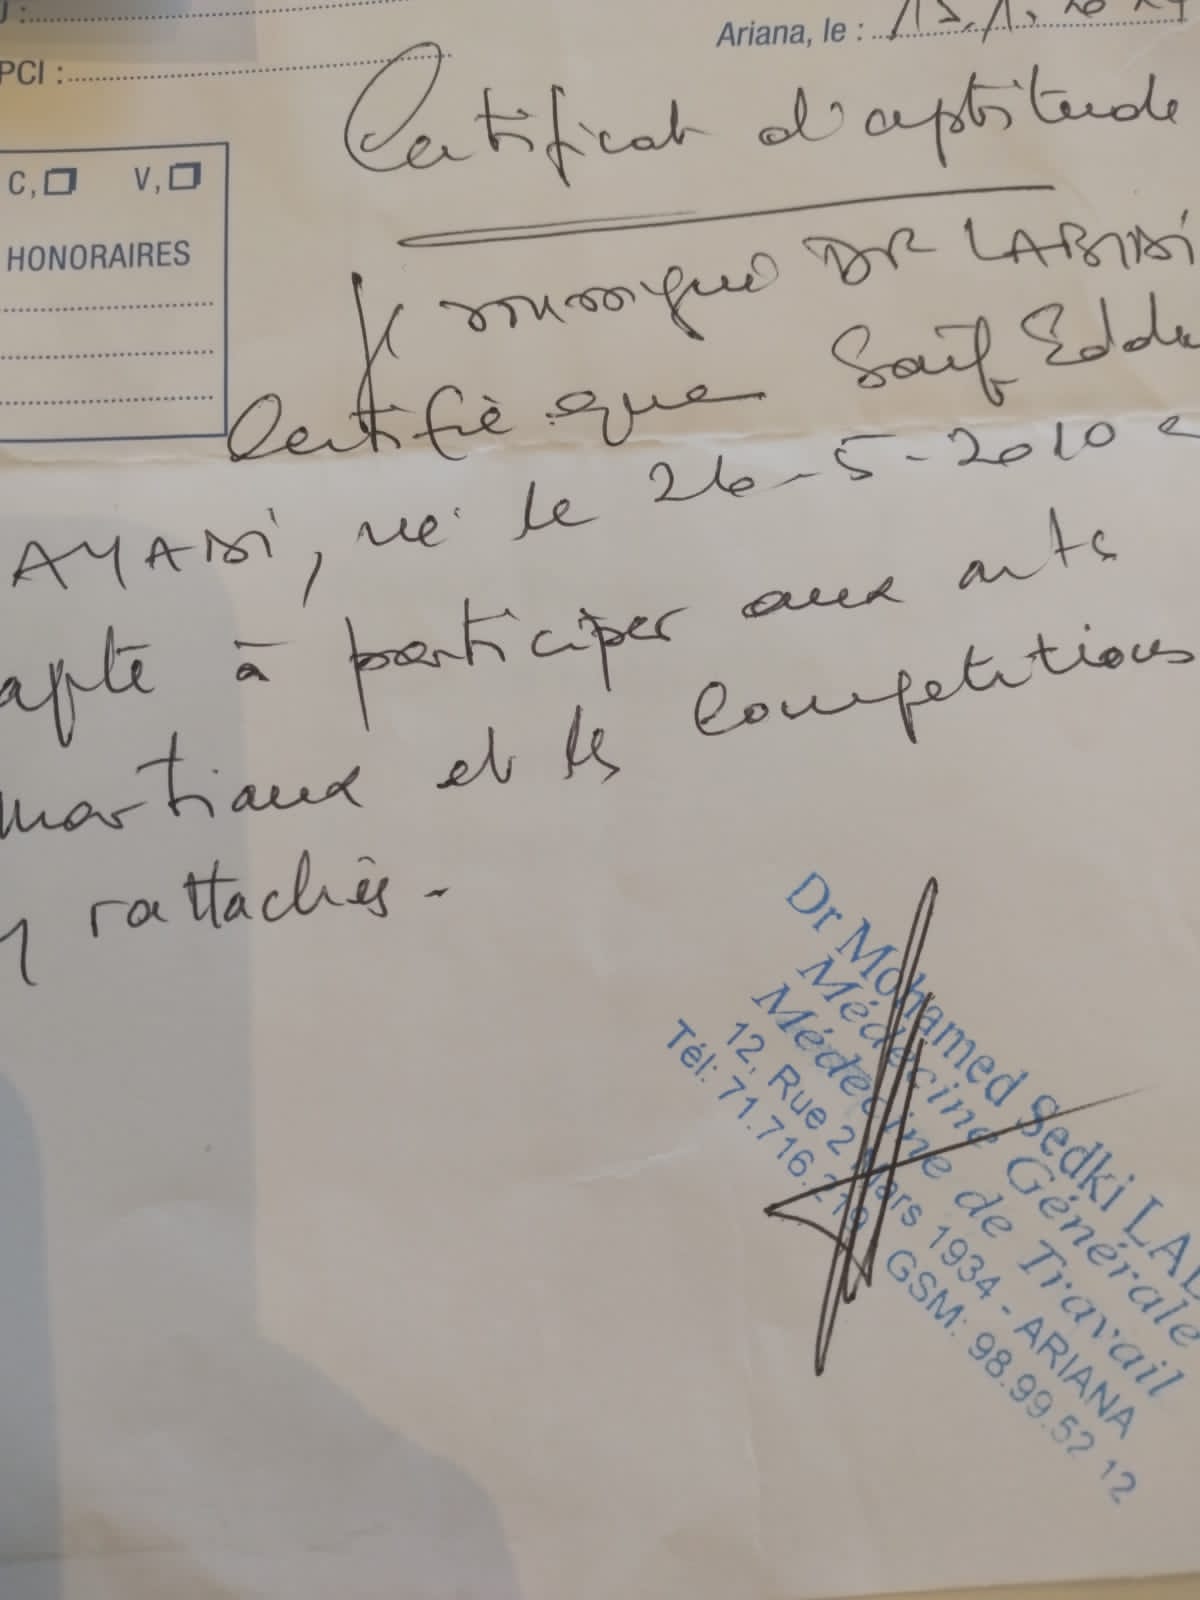 PCI :
Ariana, le :
Certificat d'aptitude
C, V,
HONORAIRES
Je soussigné DR LABIDI
Certifie que Saif Edd
AYADI, né le 26-5-2010
apte à participer aux arts
martiaux et les compétitions
y rattachés -
Dr Mohamed Sedki LA
Médecine Générale
Médecine de Travail
12, Rue 2 Mars 1934 - ARIANA
Tél: 71.716.219 GSM: 98.99.52 12